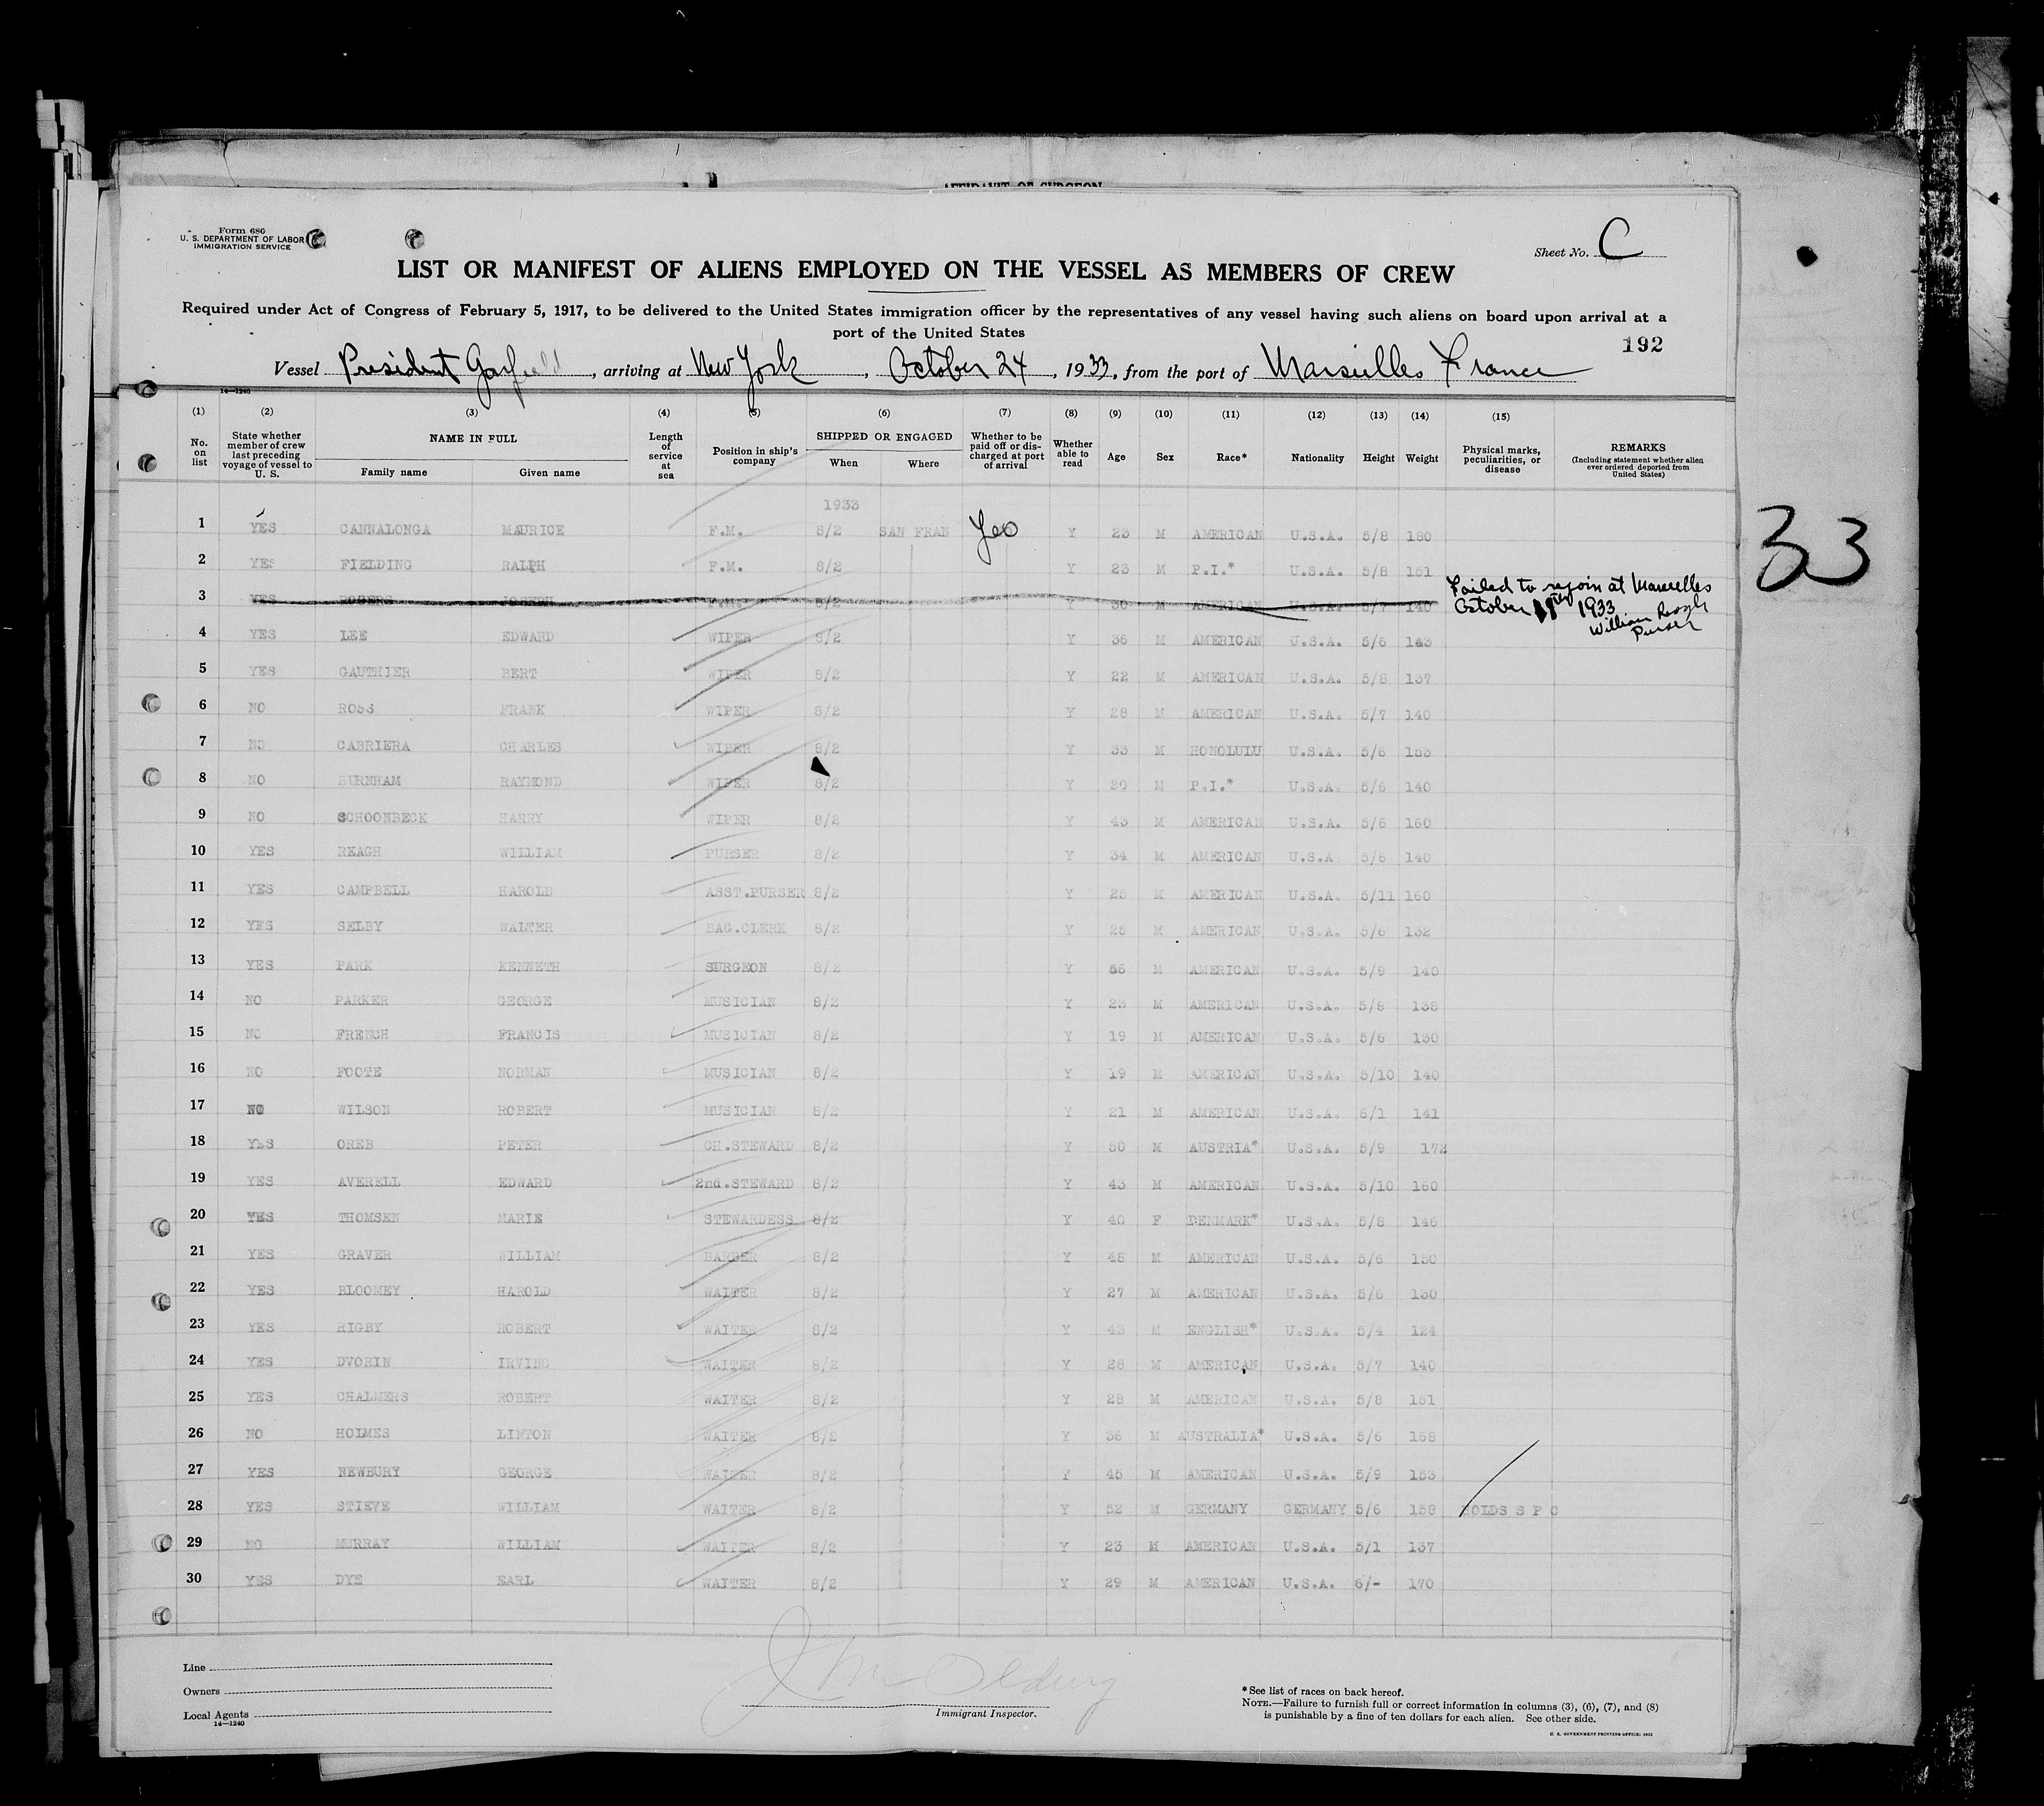 AFFIDAVIT OF SURGEON
Form 680
U. S. DEPARTMENT OF LABOR
IMMIGRATION SERVICE
Sheet No. C
LIST OR MANIFEST OF ALIENS EMPLOYED ON THE VESSEL AS MEMBERS OF CREW
Required under Act of Congress of February 5, 1917, to be delivered to the United States immigration officer by the representatives of any vessel having such aliens on board upon arrival at a
port of the United States
192
Vessel President Garfield, arriving at New York, October 24, 1933, from the port of Marseilles France
14—1240
(1) (2) (3) (4) (5) (6) (7) (8) (9) (10) (11) (12) (13) (14) (15)
No. on list State whether member of crew last preceding voyage of vessel to U. S. NAME IN FULL Family name Given name Length of service at sea Position in ship's company SHIPPED OR ENGAGED When Where Whether to be paid off or discharged at port of arrival Whether able to read Age Sex Race* Nationality Height Weight Physical marks, peculiarities, or disease REMARKS (Including statement whether alien ever ordered deported from United States)
1933
1 YES CANNALONGA MAURICE F.M. 8/2 SAN FRAN Yes Y 23 M AMERICAN U.S.A. 5/8 180
33
2 YES FIELDING RALPH F.M. 8/2 Y 23 M P.I.* U.S.A. 5/8 151
3 YES ROGERS JOSEPH F.M. 8/2 Y 30 M AMERICAN U.S.A. 5/7 140 Failed to rejoin at Marseilles
October 1933
William Reagh
Purser
4 YES LEE EDWARD WIPER 8/2 Y 36 M AMERICAN U.S.A. 5/6
5 YES GAUTHIER BERT WIPER 8/2 Y 22 M AMERICAN U.S.A. 5/8 137
6 NO ROSS FRANK WIPER 8/2 Y 28 M AMERICAN U.S.A. 5/7 140
7 NO CABRIERA CHARLES WIPER 8/2 Y 33 M HONOLULU U.S.A. 5/6 153
8 NO BURNHAM RAYMOND WIPER 8/2 Y 29 M P.I.* U.S.A. 5/6 140
9 NO SCHOONBECK HARRY WIPER 8/2 Y 43 M AMERICAN U.S.A. 5/8 160
10 YES REAGH WILLIAM PURSER 8/2 Y 34 M AMERICAN U.S.A 5/6 140
11 YES CAMPBELL HAROLD ASST.PURSER 8/2 Y 25 M AMERICAN U.S.A. 5/11 160
12 YES SELBY WALTER BAG.CLERK 8/2 Y 25 M AMERICAN U.S.A. 5/6 132
13 YES PARK KENNETH SURGEON 8/2 Y M AMERICAN U.S.A. 5/9 140
14 NO PARKER GEORGE MUSICIAN 8/2 Y 23 M AMERICAN U.S.A. 5/8 138
15 NO FRENCH FRANCIS MUSICIAN 8/2 Y 19 M AMERICAN U.S.A. 5/6 130
16 NO FOOTE NORMAN MUSICIAN 8/2 Y 19 M AMERICAN U.S.A. 5/10 140
17 NO WILSON ROBERT MUSICIAN 8/2 Y 21 M AMERICAN U.S.A. 6/1 141
18 YES OREB PETER CH.STEWARD 8/2 Y 50 M AUSTRIA* U.S.A. 5/9 172
19 YES AVERELL EDWARD 2nd.STEWARD 8/2 Y 43 M AMERICAN U.S.A. 5/10 160
20 YES THOMSEN MARIE STEWARDESS 8/2 Y 40 F DENMARK* U.S.A. 5/8 146
21 YES GRAVER WILLIAM BARBER 8/2 Y 48 M AMERICAN U.S.A. 5/6 150
22 YES BLOOMEY HAROLD WAITER 8/2 Y 27 M AMERICAN U.S.A. 5/6 130
23 YES RIGBY ROBERT WAITER 8/2 Y 43 M ENGLISH* U.S.A. 5/4 124
24 YES DVORIN IRVING WAITER 8/2 Y 28 M AMERICAN U.S.A. 5/7 140
25 YES CHALMERS ROBERT WAITER 8/2 Y 28 M AMERICAN U.S.A. 5/8 151
26 NO HOLMES LINTON WAITER 8/2 Y 36 M AUSTRALIA* U.S.A. 5/6 168
27 YES NEWBURY GEORGE WAITER 8/2 Y 45 M AMERICAN U.S.A. 5/9 153
28 YES STIEVE WILLIAM WAITER 8/2 Y 52 M GERMANY GERMANY 5/6 158 HOLDS S P C
29 NO MURRAY WILLIAM WAITER 8/2 Y 23 M AMERICAN U.S.A. 5/1 137
30 YES DYE EARL WAITER 8/2 Y 29 M AMERICAN U.S.A. 6/- 170
Line
Owners
Local Agents
14—1240
Immigrant Inspector.
*See list of races on back hereof.
NOTE.—Failure to furnish full or correct information in columns (3), (6), (7), and (8)
is punishable by a fine of ten dollars for each alien. See other side.
U. S. GOVERNMENT PRINTING OFFICE: 1932